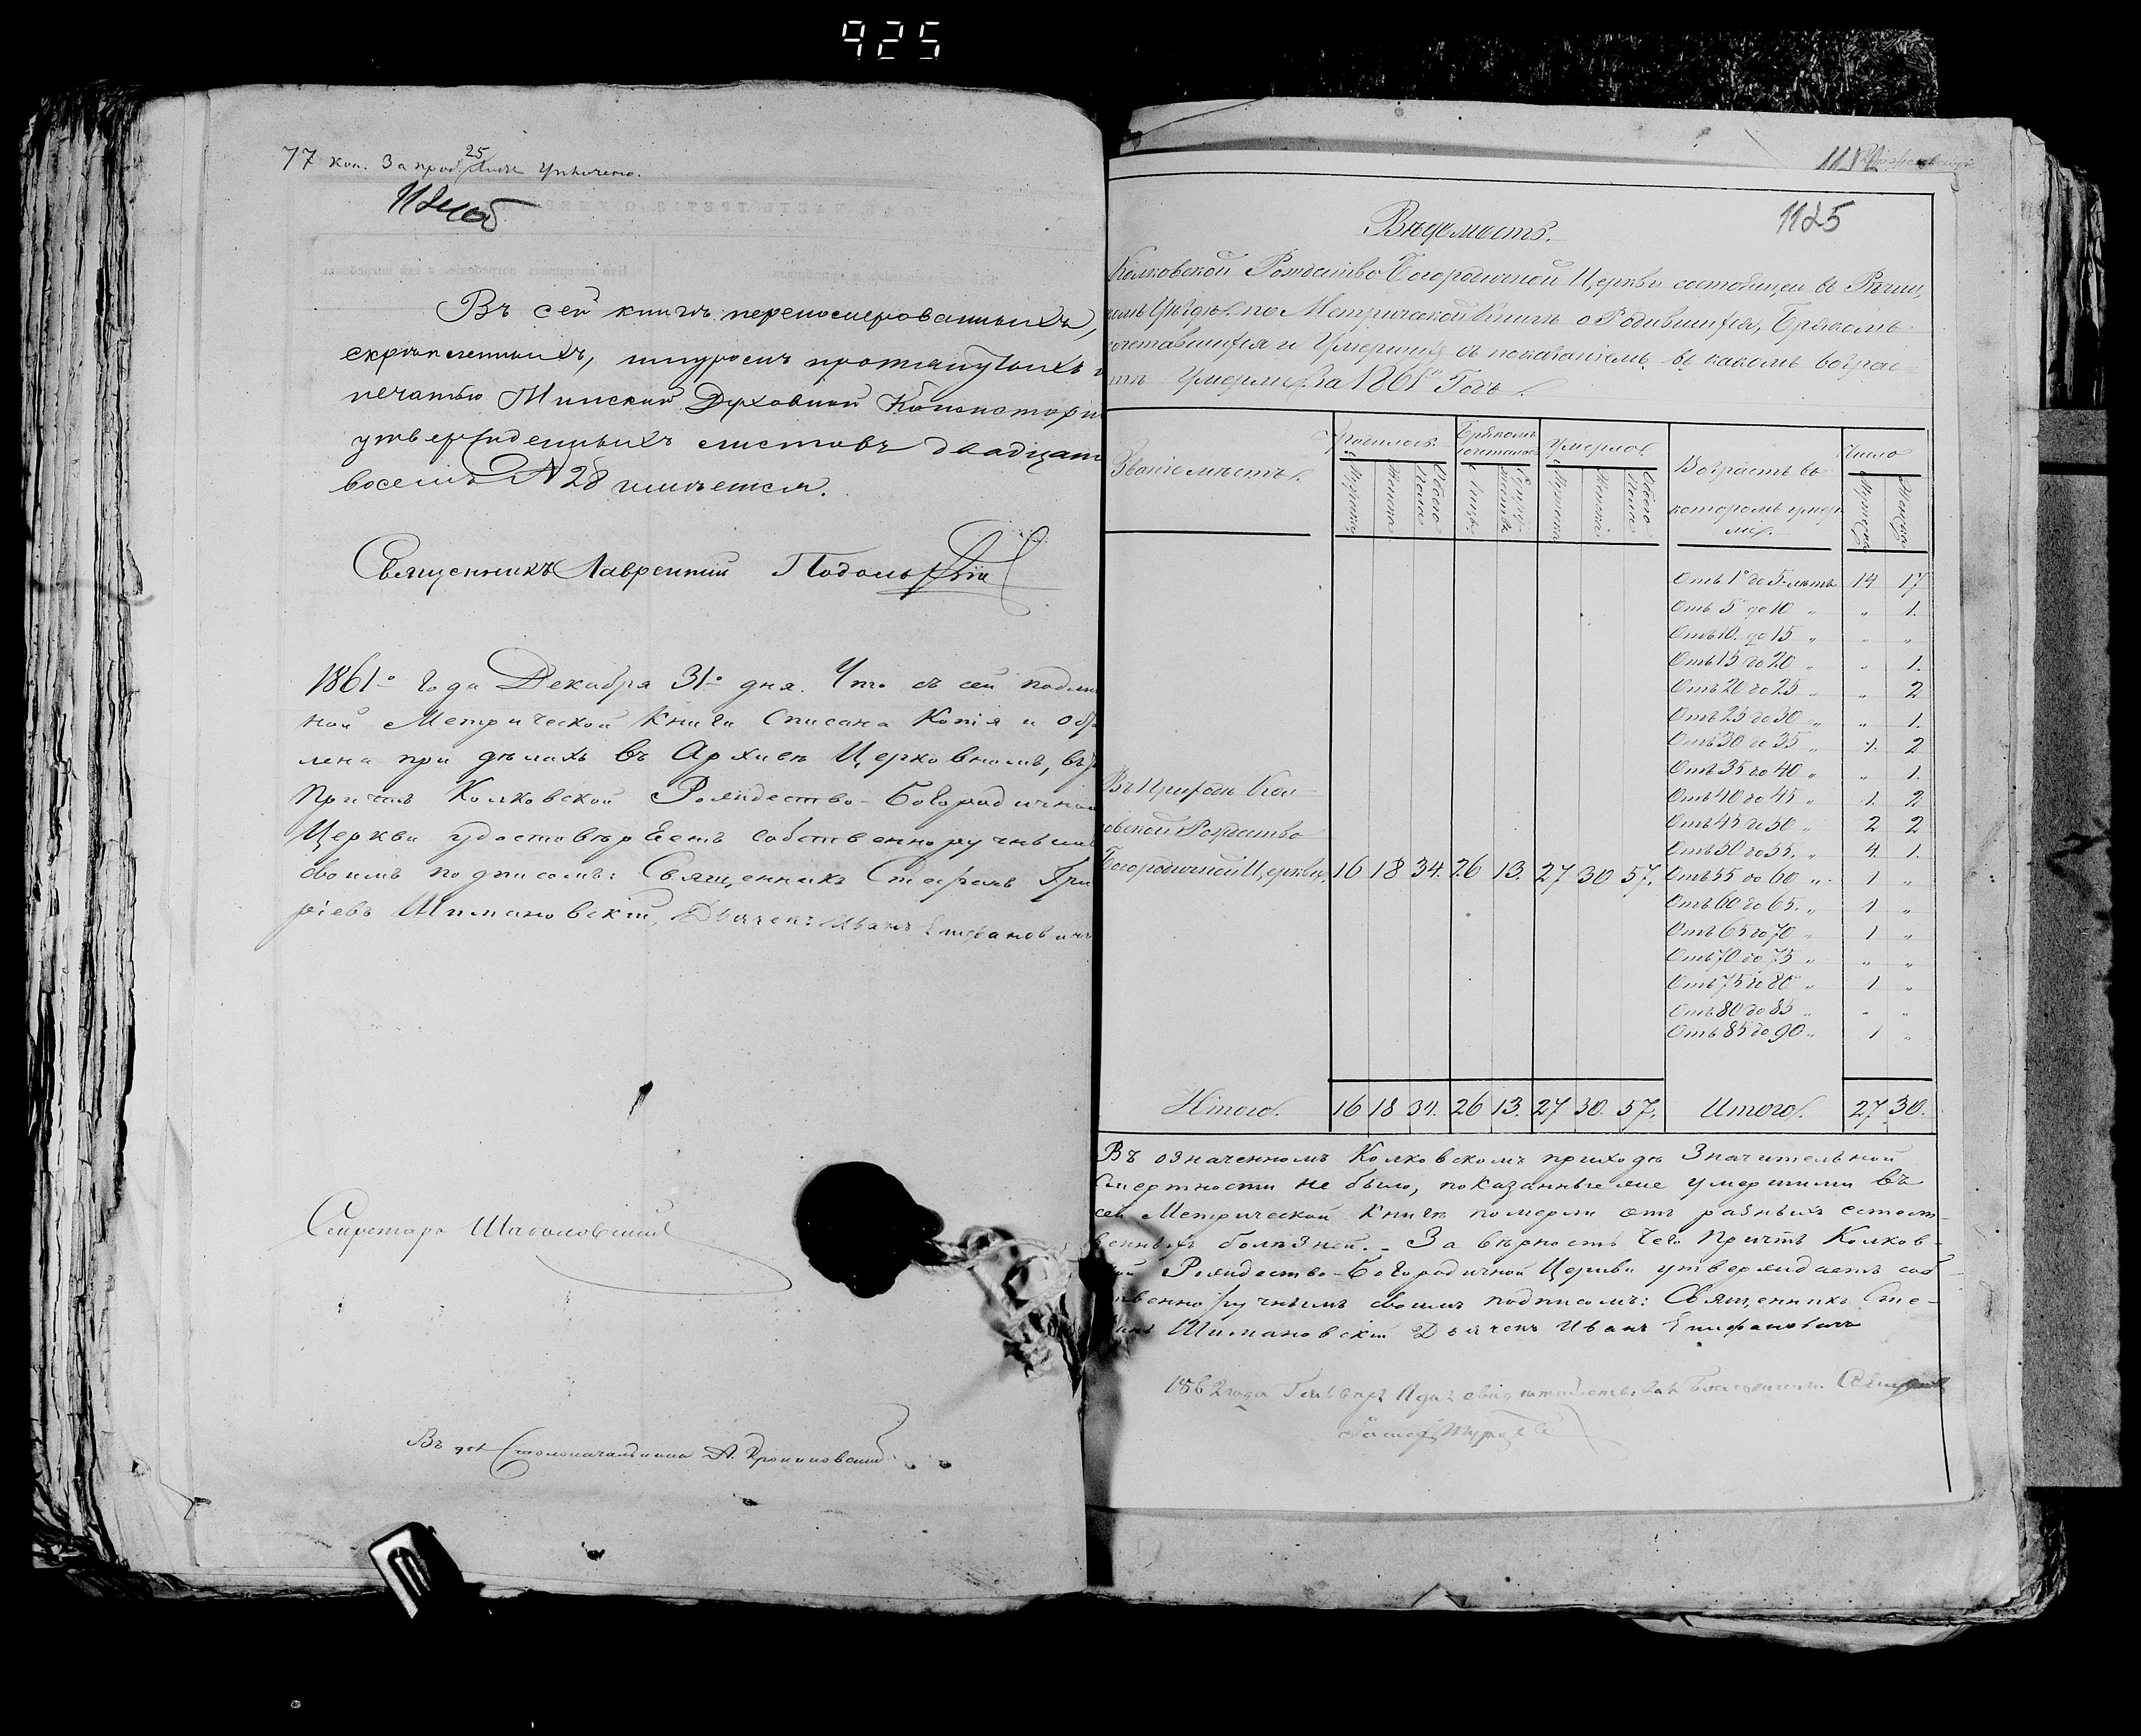 925
77 коп. За проб 25 уплочено.
Въ сей книгѣ перенумерованныхъ,
скрѣпленныхъ, шнуромъ протянутыхъ и
печатью Минской Духовной Консистори
утвержденныхъ листовъ двадцать
восемь № 28 имѣется.
Священникъ Лаврентій Подольскій
1861го Года Декабря 31го дня. Что съ сей подлин
ной Метрической Книги Списана Копія и
лена при дѣлахъ въ Архивѣ Церковномъ, въ
Причтъ Колковской Рождество-Богородичной
Церкви удостовѣряетъ собственноручнымъ
своимъ подписомъ: Священникъ Стефанъ Григо
ріевъ Шимановскій, Дьячекъ Иванъ Епифановичъ
Секретарь
Въ дол Столоначальника А.
1125
Вѣдомость.
Колковской Рождество Богородичной Церкви состоящей въ Рѣчиц
комъ Уѣздѣ по Метрической Книгѣ о Родившихся, Бракомъ
сочетавшихся и Умершихъ съ показаніемъ, въ какомъ возрас
тѣ Умерли За 1861й Годъ.
Званіе мѣстъ. Родилось. Бракомъ сочеталось Умерло Возрастъ въ которомъ умерли. Число
Мужеска Женска Обоего Пола Лицъ Супружествъ Мужеска Женска Обоего Пола Мужеска Женска
Отъ 1го до 5 лѣтъ 14 17
Отъ 5 до 10 „ „ 1.
Отъ 10 до 15 „ „ „
Отъ 15 до 20 „ „ 1.
Отъ 20 до 25 „ „ 2
Отъ 25 до 30 „ „ 1.
Отъ 30 до 35 „ 1. 2
Отъ 35 до 40 „ „ 1.
Въ Приходѣ Кол-
Отъ 40 до 45 „ 1. 2
ковской Рождество
Отъ 45 до 50 „ 2 2
Отъ 50 до 55. „ 4. 1.
Богородичной Церкви. 16 18 34. 26 13. 27 30 57. Отъ 55 до 60 „ 1 „
Отъ 60 до 65. „ 1 „
Отъ 65 до 70 „ 1 „
Отъ 70 до 75 „ „ „
Отъ 75 до 80 „ 1 „
Отъ 80 до 85 „ „ „
Отъ 85 до 90 „ 1 „
Итого. 16 18 34. 26 13. 27 30. 57. Итого. 27. 30.
Въ означенномъ Колковскомъ приходѣ Значительной
Смертности не было, показанные же умершими въ
сей Метрической Книгѣ померли отъ разныхъ естест-
венныхъ болѣзней. - За вѣрность чего Причтъ Колков-
ской Рождество-Богородичной Церкви утверждаетъ соб-
ственноручнымъ своимъ подписомъ: Священникъ Сте-
фанъ Шимановскій Дьячекъ Иванъ Епифановичъ
1862 года Генваря